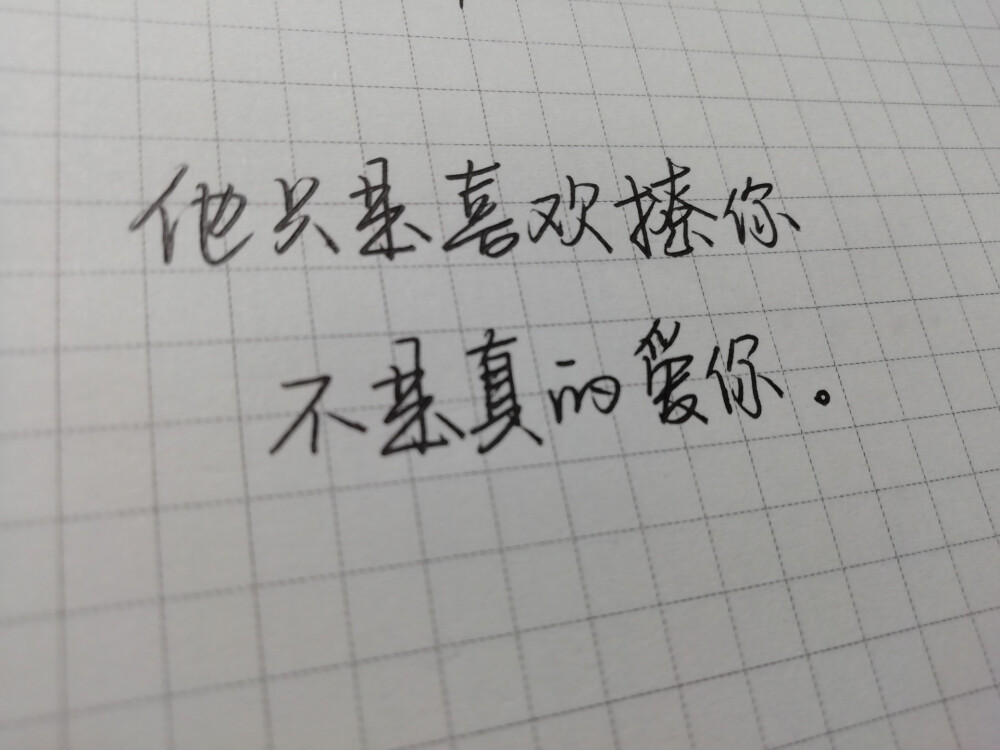 他只是喜欢揍你
不是真的爱你。